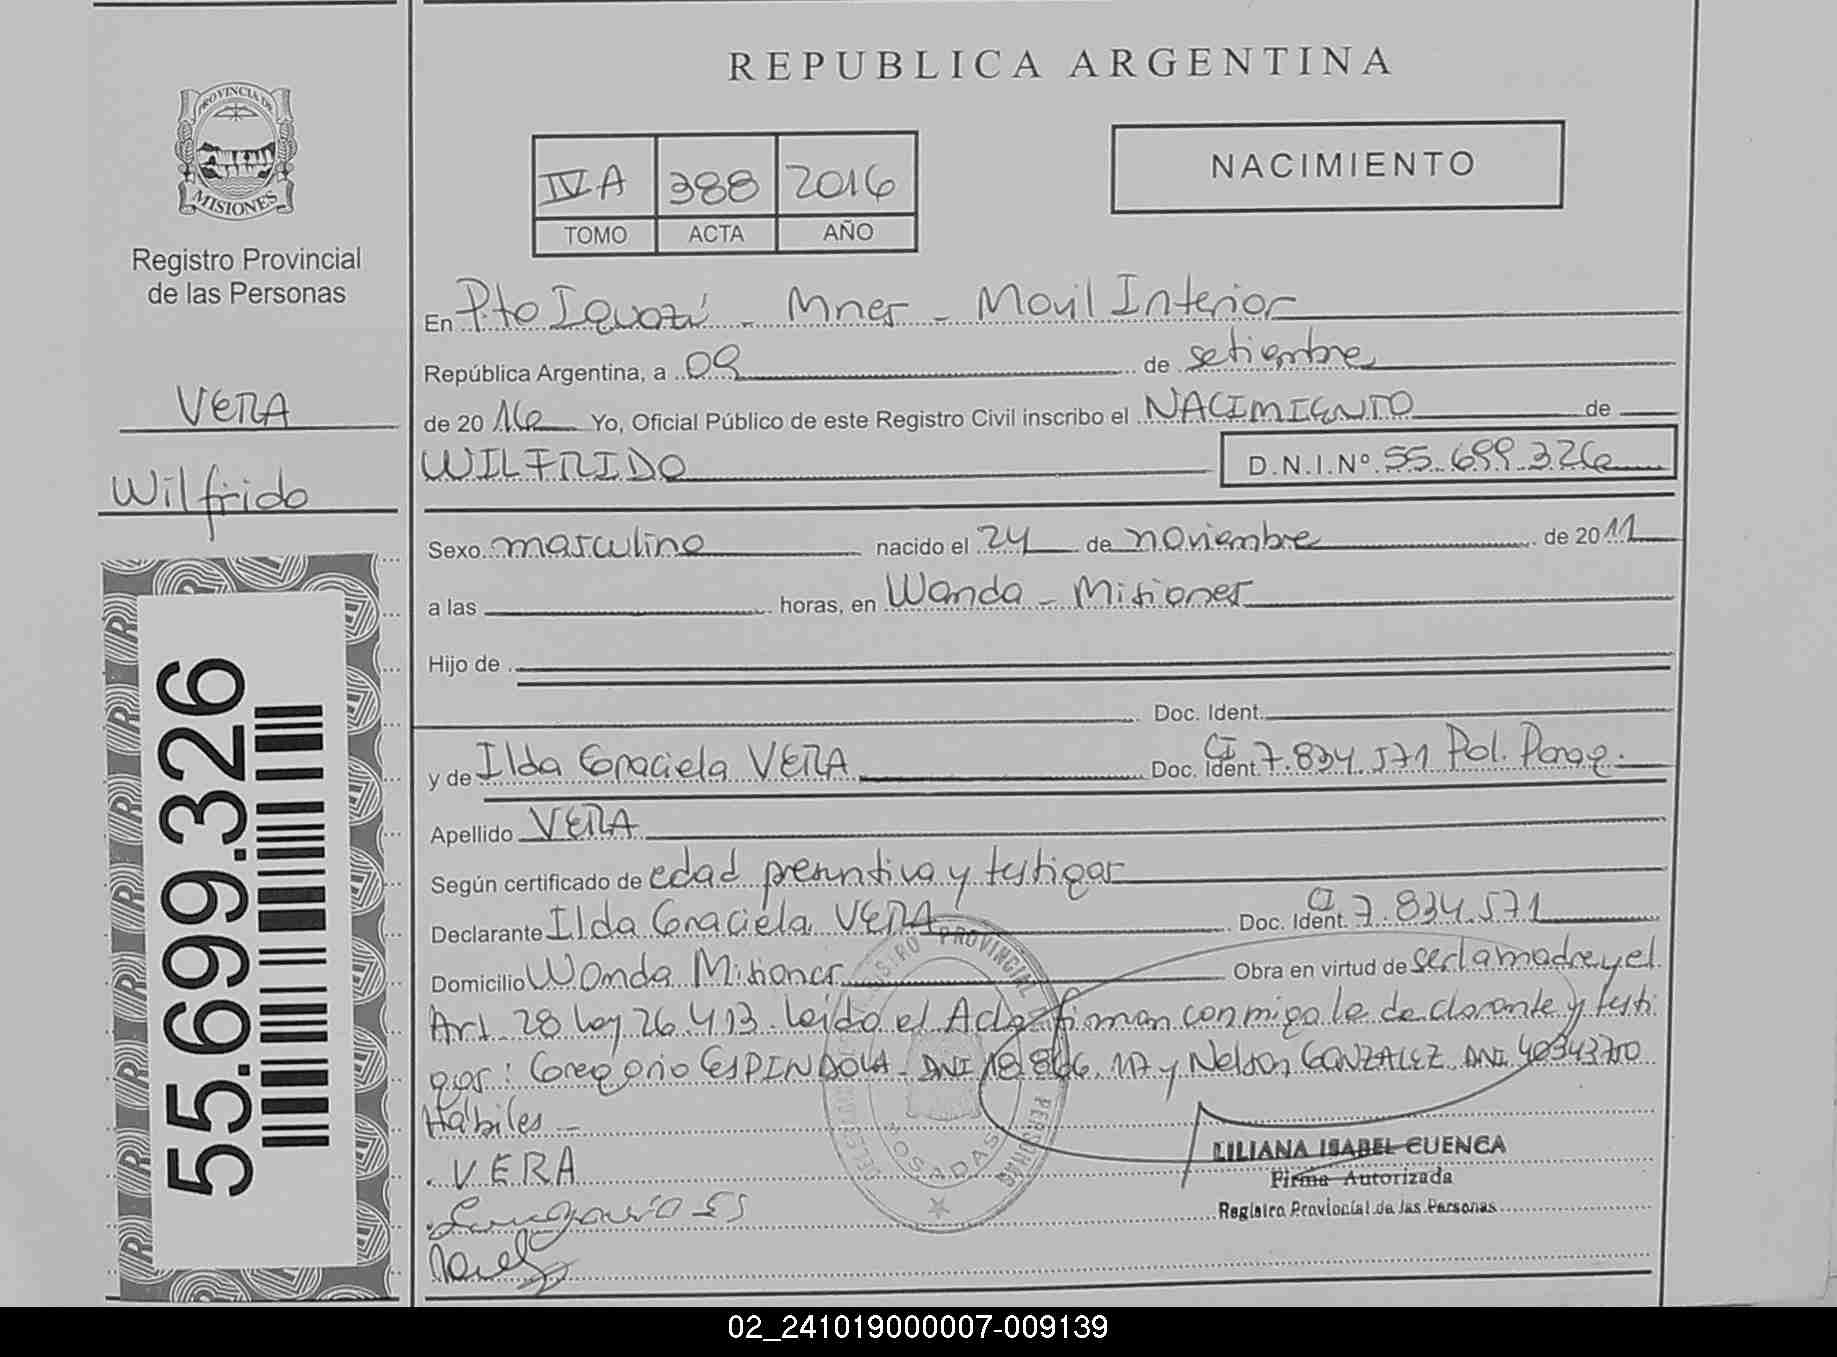 REPUBLICA ARGENTINA
PROVINCIA DE
MISIONES
Registro Provincial
de las Personas
VERA
Wilfrido
55.699.326
IV A 388 2016
TOMO ACTA AÑO
NACIMIENTO
En Pto Iguazú - Mnes - Movil Interior
República Argentina, a 09 de setiembre
de 2016 Yo, Oficial Público de este Registro Civil inscribo el NACIMIENTO de
WILFRIDO D.N.I.Nº 55.699.326
Sexo masculino nacido el 24 de noviembre de 2011
a las horas, en Wanda - Misiones
Hijo de
Doc. Ident.
y de Ilda Graciela VERA Doc. Ident. CI 7.834.571 Pol. Parag.
Apellido VERA
Según certificado de edad presuntiva y testigos
Declarante Ilda Graciela VERA Doc. Ident. CI 7.834.571
Domicilio Wanda Misiones Obra en virtud de ser la madre y el
Art. 28 Ley 26.413. Leído el Acta firman conmigo la declarante y testi
gos: Gregorio ESPINDOLA - DNI 18.866.117 y Nelson GONZALEZ DNI 40343700
Hábiles -
VERA
LILIANA ISABEL CUENCA
Firma Autorizada
Registro Provincial de las Personas
REGISTRO PROVINCIAL PERSONAS
POSADAS
02_241019000007-009139